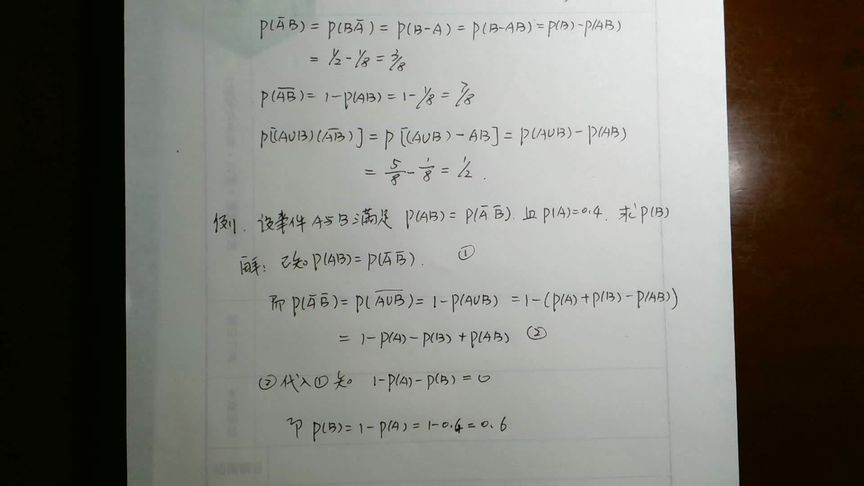 P(ĀB) = P(BĀ) = P(B-A) = P(B-AB) = P(B)-P(AB)
= 1/2 - 1/8 = 3/8
P(\overline{AB}) = 1-P(AB) = 1-1/8 = 7/8
P[(A∪B)(\overline{AB})] = P[(A∪B)-AB] = P(A∪B)-P(AB)
= 5/8 - 1/8 = 1/2.
例. 设事件A与B满足 P(AB) = P(Ā B̄). 且P(A)=0.4. 求P(B)
解: 已知P(AB) = P(Ā B̄). ①
而P(Ā B̄) = P(\overline{A∪B}) = 1-P(A∪B) = 1-(P(A)+P(B)-P(AB))
= 1-P(A)-P(B)+P(AB) ②
②代入①知 1-P(A)-P(B) = 0
即 P(B) = 1-P(A) = 1-0.4 = 0.6